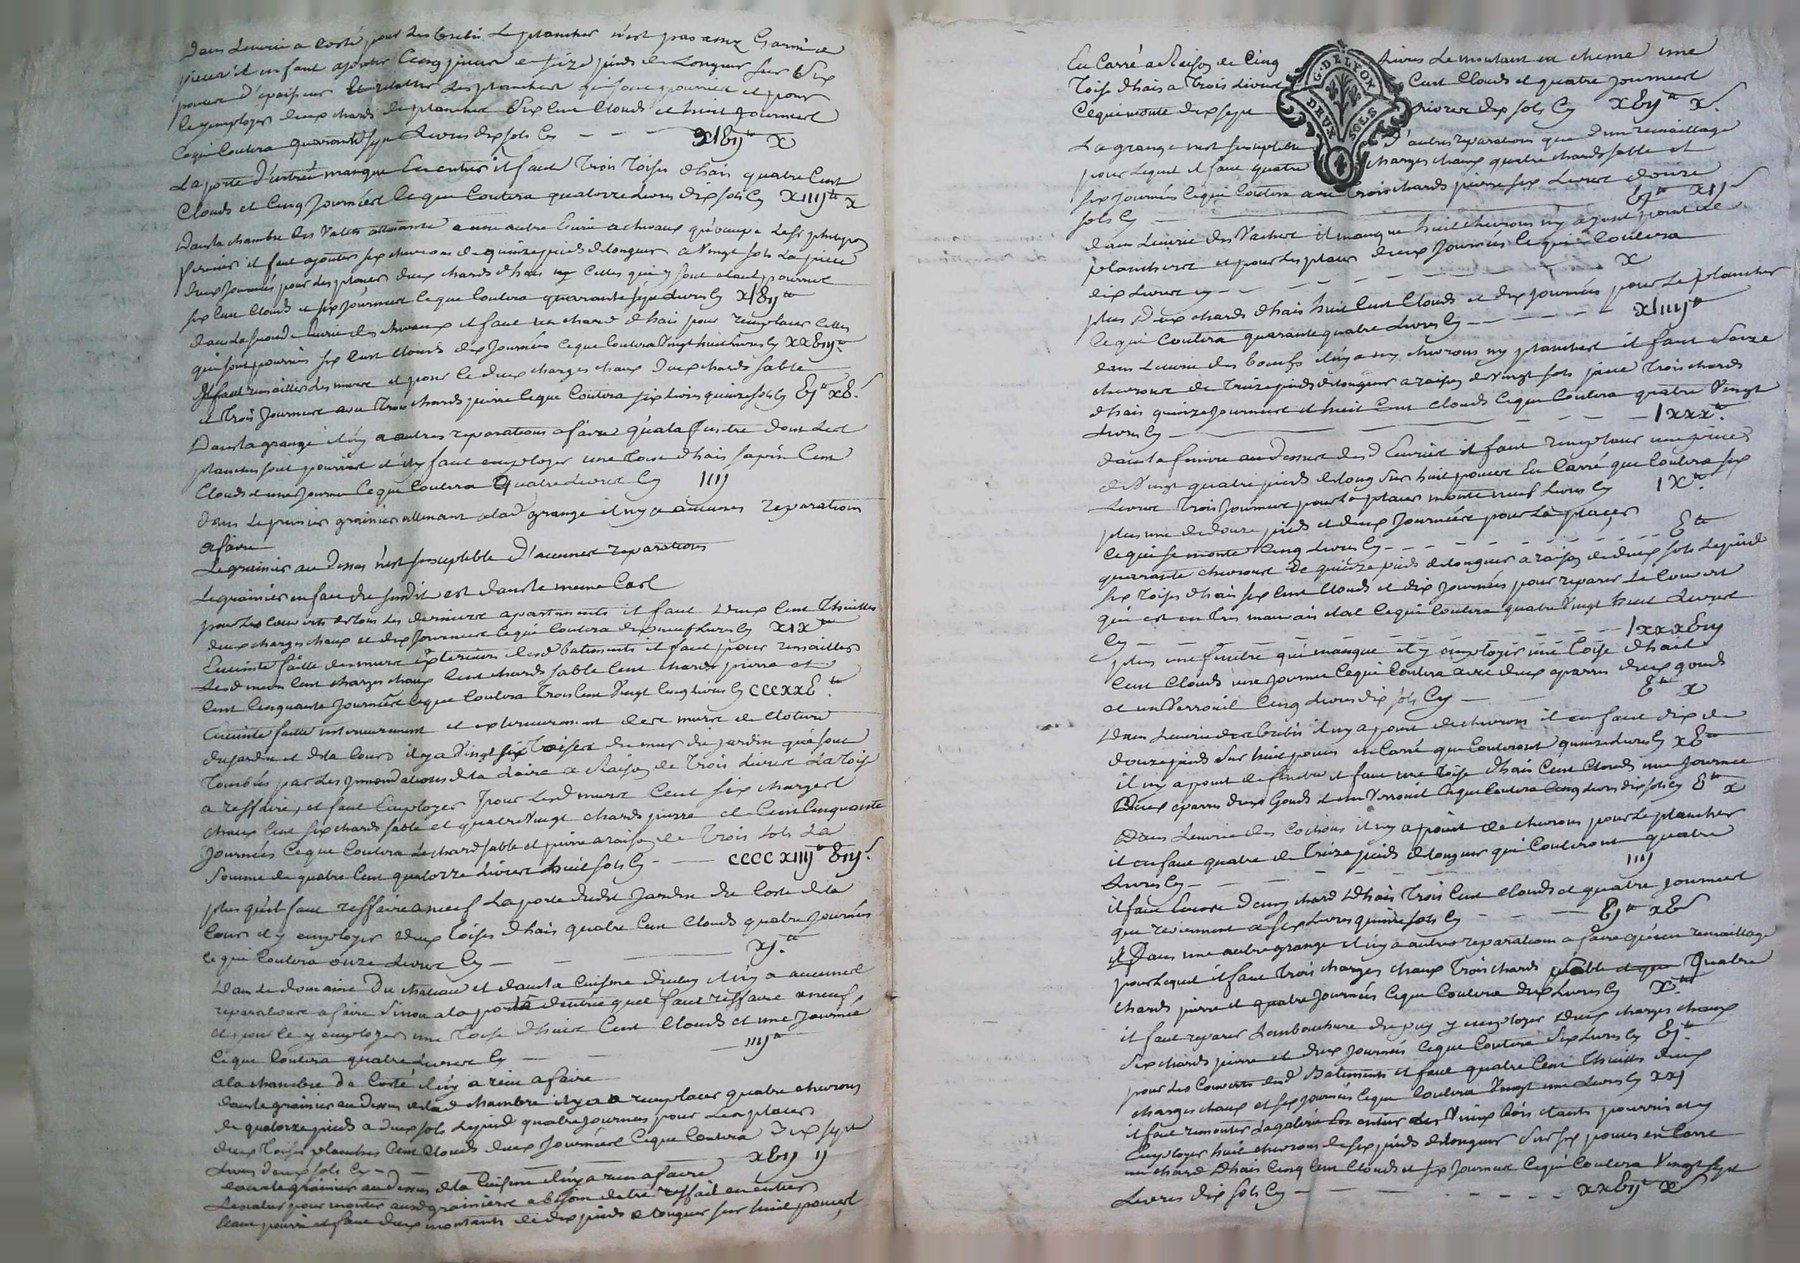 Dans Lecurie a Costé pour Les brebis Le plancher n'est pas assez Garni de
pieces il en faut ajouter Cinq pieces de seize pieds de Longueur sur six
pouces d'epaisseur les planches qui sont pourries et pour
Le y employer deux chards de planches six Cent Clouds et huit Journees
Cequi Coutera quarante sept Livres dix sols Cy - - - xlvij tt x
La porte d'entrée manque En entier il faut Trois Toises d'hais quatre Cent
Clouds et Cinq Journées Ce qui Coutera quatorze Livres dix sols Cy xiiij tt x
Dans la chambre des Valets attenante a une autre Ecurie a chevaux
fermier il faut ajouter six chevrons de quinze pieds de longueur a Vingt sols La piece
deux Journées pour Les placer deux chards d'hais celles qui y sont etant pourries
six Cent Clouds et six Journées Ce que Coutera quarante sept Livres Cy xlvij tt
dans La seconde Ecurie des chevaux il faut un chard d'hais pour remplacer Celles
qui sont pourries six Cent Clouds dix Journées Ceque Coutera Vingt huit Livres Cy xxviij tt
Il faut remailler Les murs et pour ce deux charges chaux deux chards sable
et Trois Journées avec Trois chards pierre Ceque Coutera six Livres quinze sols Cy vj tt xv s
Dans la grange il n'y a autres reparations a faire qu'a la fenetre dont Les
planches sont pourries il y faut employer une Toise d'hais sapin Cent
Clouds et une Journée Ceque Coutera Quatre Livres Cy iiij
dans Le premier grainier attenant a lad. grange il n'y a aucunes reparations
a faire
Le grainier au dessus n'est susceptible d'aucunes reparations
Le grainier en face du susdit est dans le meme Cas
pour Les Couverts de tous Les derniers apartements il faut deux Cent Thuilles
deux charges chaux et dix Journées Ce qui Coutera dix neuf Livres Cy xix tt
Ensuitte faitte des murs exterieurs desd. batiments il faut pour remailler
Lesd. murs Cent charges chaux Cent chards sable Cent chards pierre et
Cent Cinquante Journées Ceque Coutera Trois Cent Vingt Cinq Livres Cy cccxxv tt
Ensuitte faitte interieurement et exterieurement des murs de Cloture
du jardin et de la Cour il y a Vingt six Toises de mur du jardin qui sont
Tombées par Les inondations de la Loire a Raison de Trois Livres La Toise
a reffaire, et faut Employer pour Lesd. murs Cent six charges
chaux Cent six chards sable et quatre Vingt chards pierre et Cent Cinquante
Journées Ceque Coutera Le chard sable et pierre a raison de Trois sols La
somme de quatre Cent quatorze Livres huit sols Cy - - cccc xiiij tt viij s
plus qu'il faut reffaire a neuf La porte dudit Jardin du Costé de la
Cour il y employer deux Toises d'hais quatre Cent Clouds quatre Journées
Ce qui Coutera onze Livres Cy - - xj tt
Dans Le domaine Du chateau et dans la Cuisine d'icelui il n'y a aucunes
reparations a faire sinon a la porte d'entrée quil faut reffaire a neuf,
et pour Le y employer une Toise d'hais Cent Clouds et une Journée
Ce que Coutera quatre Livres Cy - - iiij tt
a la chambre De Costé il n'y a rien a faire
dans le grainier au dessus de lad. chambre il y a a remplacer quatre chevrons
de quatorze pieds a deux sols Le pied quatre Journées pour Les placer
deux Toises planches Cent Clouds deux Journées Ceque Coutera Dix sept
Livres deux sols Cy - - xvij ij
dans Le grainier au dessus de la Cuisine il n'y a rien a faire
pour monter aud. grainier a besoin d'etre reffait en entier
etant pourri il faut deux montants de dix pieds de longueur sur huit pouces
En Carré a Raison de Cinq Livres Le montant en chene une
Toise d'hais a Trois Livres Cent Clouds et quatre Journées
Ce qui monte dix sept Livres dix sols Cy xvij tt x s
La grange n'est susceptible d'autres reparations que d'un remaillage
pour Lequel il faut quatre charges chaux quatre chards sable et
six Journées Ce qui Coutera avec Trois chards pierre six Livres douze
sols Cy - - vj tt xij s
dans Lecurie des Vaches il manque huit chevrons n'y ayant point de
planches et pour Les placer deux Journées Ce qui Coutera
dix Livres cy - - x
plus deux chards d'hais huit Cent Clouds et dix Journées pour Le plancher
Ce qui Coutera quarante quatre Livres Cy - - xliiij tt
dans Lecurie des boeufs il n'y a ny chevrons ny planches il faut seize
chevrons de Treize pieds de longueur a raison de Vingt sols piece Trois chards
d'hais quinze Journées et huit Cent Clouds Ce qui Coutera quatre Vingt
Livres Cy - - lxxx tt
dans la feniere au dessus desd. Ecuries il faut remplacer une piece
de Vingt quatre pieds de long sur huit pouces En Carré que Coutera six
Livres Trois Journées pour La placer monte neuf Livres Cy ix tt
plus une de douze pieds et deux Journées pour La placer
Ce qui se monte Cinq Livres Cy - - v tt
quarante chevrons De quinze pieds de longueur a raison de deux sols Le pied
six Toises d'hais six Cent Clouds et dix Journées pour reparer Le Couvert
qui est en Tres mauvais etat Ce qui Coutera quatre Vingt huit Livres
Cy - - lxxxviij
plus une fenetre qui manque il y employer une Toise d'hais
Cent Clouds une Journée Ce qui Coutera avec deux eparres deux gonds
et un Verrouil Cinq Livres dix sols Cy - v tt x
Dans Lecurie des brebis il n'y a point de chevrons il en faut dix de
douze pieds sur huit pouces en Carré que Couteront quinze Livres Cy xv tt
il n'y a point de fenetre il faut une Toise d'hais Cent Clouds une Journée
Deux eparres deux Gonds et un Verrouil Ce qui Coutera Cinq Livres dix sols Cy v tt x
Dans Lecurie des Cochons il n'y a point de chevrons pour Le plancher
il en faut quatre de Treize pieds de longueur qui Couteront quatre
Livres Cy - - iiij
il faut Encore Demy chard d'hais Trois Cent Clouds et quatre Journées
que reviennent a six Livres quinze sols Cy - - vj tt xv s
Dans une autre grange il n'y a autres reparations a faire qu'un remaillage
pour Lequel il faut Trois charges chaux Trois chards sable et Quatre
chards pierre et quatre Journées Ceque Coutera dix Livres Cy x tt
il faut reparer Lembouchure du puy y employer deux charges chaux
six chards pierre et deux Journées Ceque Coutera six Livres Cy vj tt
pour Les Couverts desd. Batiments il faut quatre Cent Thuilles deux
charges chaux et six Journées Ceque Coutera Vingt une Livres Cy xxj
il faut remonter La galerie En entier Les Vieux bois etants pourris et y
Employer huit chevrons de six pieds de longueur sur six pouces en Carré
un chard d'hais Cinq Cent Clouds et six Journées Ce qui Coutera Vingt sept
Livres dix sols Cy - - xxvij tt x s
G. DE LYON
DEUX SOLS